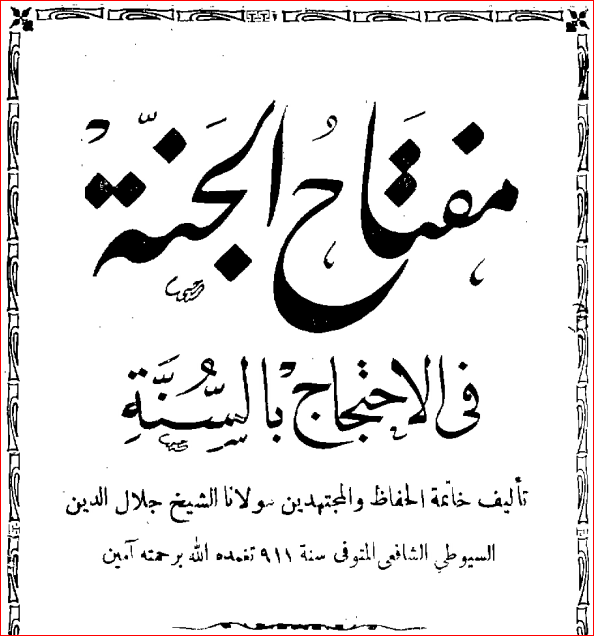 مفتاح الجنّة
في الاحتجاج بالسُّنَّةِ
تأليف خاتمة الحفاظ والمجتهدين مولانا الشيخ جلال الدين
السيوطي الشافعي المتوفى سنة ٩١١ تغمده الله برحمته آمين